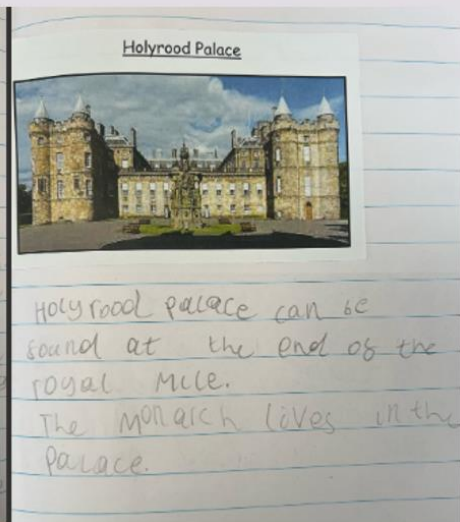 Holyrood Palace
Holyrood palace can be
found at the end of the
royal Mile.
The Monarch lives in the
Palace.